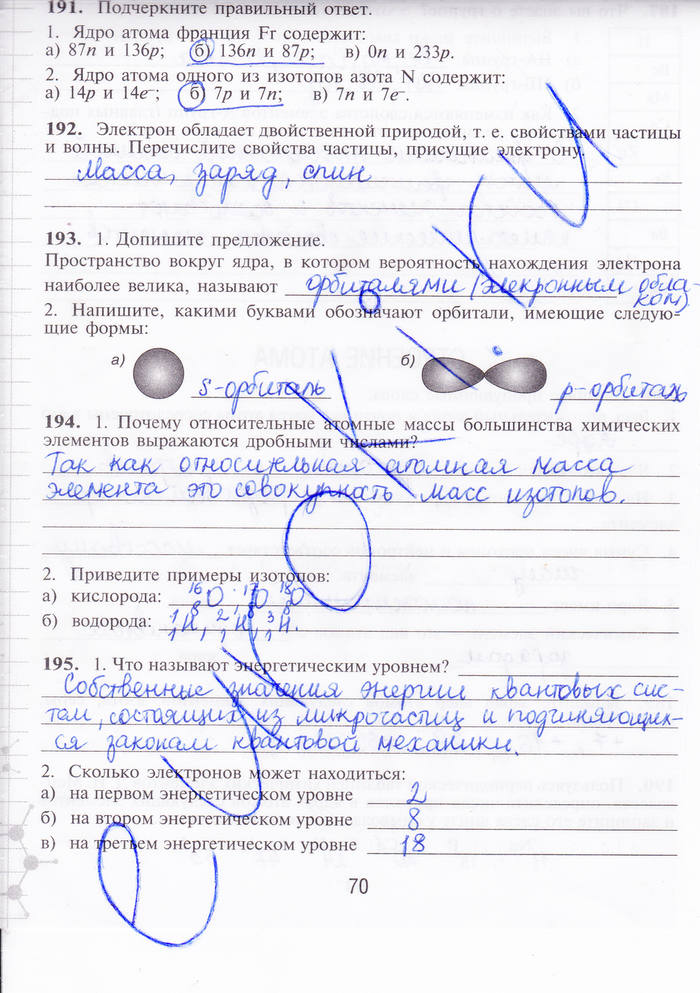 191. Подчеркните правильный ответ.
1. Ядро атома франция Fr содержит:
а) 87n и 136p; б) 136n и 87p; в) 0n и 233p.
2. Ядро атома одного из изотопов азота N содержит:
а) 14p и 14e⁻; б) 7p и 7n; в) 7n и 7e⁻.
192. Электрон обладает двойственной природой, т. е. свойствами частицы
и волны. Перечислите свойства частицы, присущие электрону.
Масса, заряд, спин
193. 1. Допишите предложение.
Пространство вокруг ядра, в котором вероятность нахождения электрона
наиболее велика, называют орбиталями (элекронным обла-
ком).
2. Напишите, какими буквами обозначают орбитали, имеющие следую-
щие формы:
а) s-орбиталь б) p-орбиталь
194. 1. Почему относительные атомные массы большинства химических
элементов выражаются дробными числами?
Так как относительная атомная масса
элемента это совокупность масс изотопов.
2. Приведите примеры изотопов:
а) кислорода: ¹⁶₈O ¹⁷₈O ¹⁸₈O
б) водорода: ¹₁H, ²₁H, ³₁H.
195. 1. Что называют энергетическим уровнем?
Собственные значения энергии квантовых сис-
тем, состоящих из микрочастиц и подчиняющих-
ся законам квантовой механики.
2. Сколько электронов может находиться:
а) на первом энергетическом уровне 2
б) на втором энергетическом уровне 8
в) на третьем энергетическом уровне 18
70